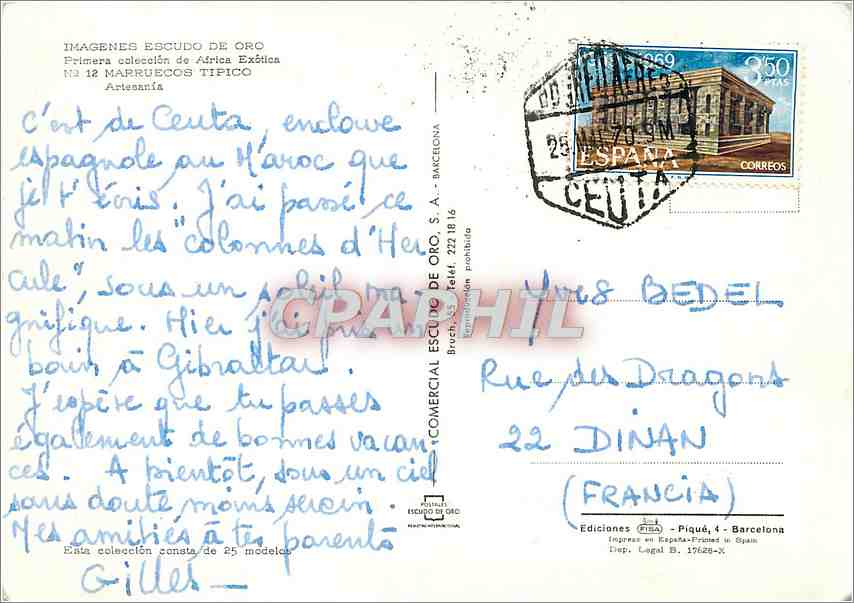 IMAGENES ESCUDO DE ORO
Primera colección de Africa Exótica
Nº 12 MARRUECOS TIPICO
Artesanía
C'est de Ceuta, enclave
espagnole au Maroc que
je t'écris. J'ai passé ce
matin les "colonnes d'Her
cule", sous un soleil ma-
gnifique. Hier j'ai pris un
bain à Gibraltar.
J'espère que tu passes
également de bonnes vacan
ces. A bientôt, sous un ciel
sans doute moins serein.
Mes amitiés à tes parents
Gilles
Esta colección consta de 25 modelos
COMERCIAL ESCUDO DE ORO, S. A. - BARCELONA
Bruch, 55 - Teléf. 222 18 16
Reproducción prohibida
POSTALES
ESCUDO DE ORO
CPAPHIL
1969
3'50
PTAS
ESPAÑA
CORREOS
CORREO AEREO
25 70 9M
CEUTA
Yves BEDEL
Rue des Dragons
22 DINAN
(FRANCIA)
Ediciones FISA - Piqué, 4 - Barcelona
Impreso en España-Printed in Spain
Dep. Legal B. 17628-X